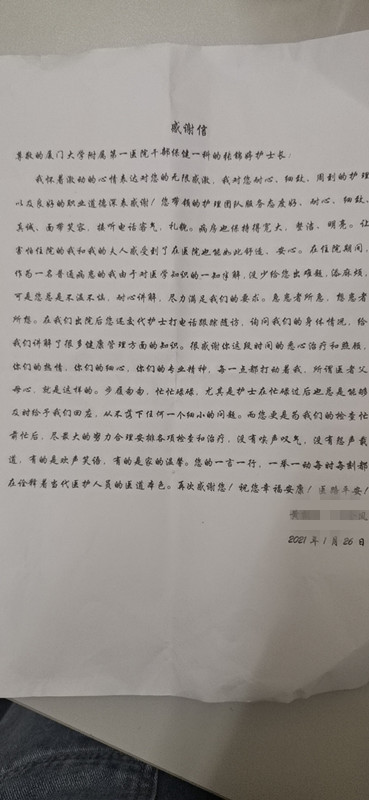 感谢信
尊敬的厦门大学附属第一医院干部保健一科的张锦婷护士长：
我怀着激动的心情表达对您的无限感激，我对您耐心、细致、周到的护理
以及良好的职业道德深表感谢！您带领的护理团队服务态度好、耐心、细致、
真诚、面带笑容，接听电话客气，礼貌。病房也保持得宽大，整洁，明亮。让
害怕住院的我和我的夫人感受到了在医院也能如此舒适，安心。在住院期间，
作为一名普通病患的我由于对医学知识的一知半解，没少给您出难题，添麻烦，
可是您总是不温不仙，耐心讲解，尽力满足我们的要求。急患者所急，想患者
所想。在我们出院后您还交代护士打电话跟踪随访，询问我们的身体情况，给
我们讲解了很多健康管理方面的知识。很感谢你这段时间的悉心治疗和照顾，
你们的热情，你们的细心，你们的专业精神，每一点都打动着我，所谓医者父
母心，就是这样的。步履匆匆，忙忙碌碌，尤其是护士在忙碌过后也总是能够
及时给予我们回应，从不落下任何一个细小的问题。而您更是为我们的检查忙
前忙后，尽最大的努力合理安排各项检查和治疗，没有唉声叹气，没有怨声载
道，有的是欢声笑语，有的是家的温馨。您的一言一行，一举一动每时每刻都
在诠释着当代医护人员的医道本色。再次感谢您！祝您幸福安康！医路平安！
黄 凤
2021 年 1 月 26 日